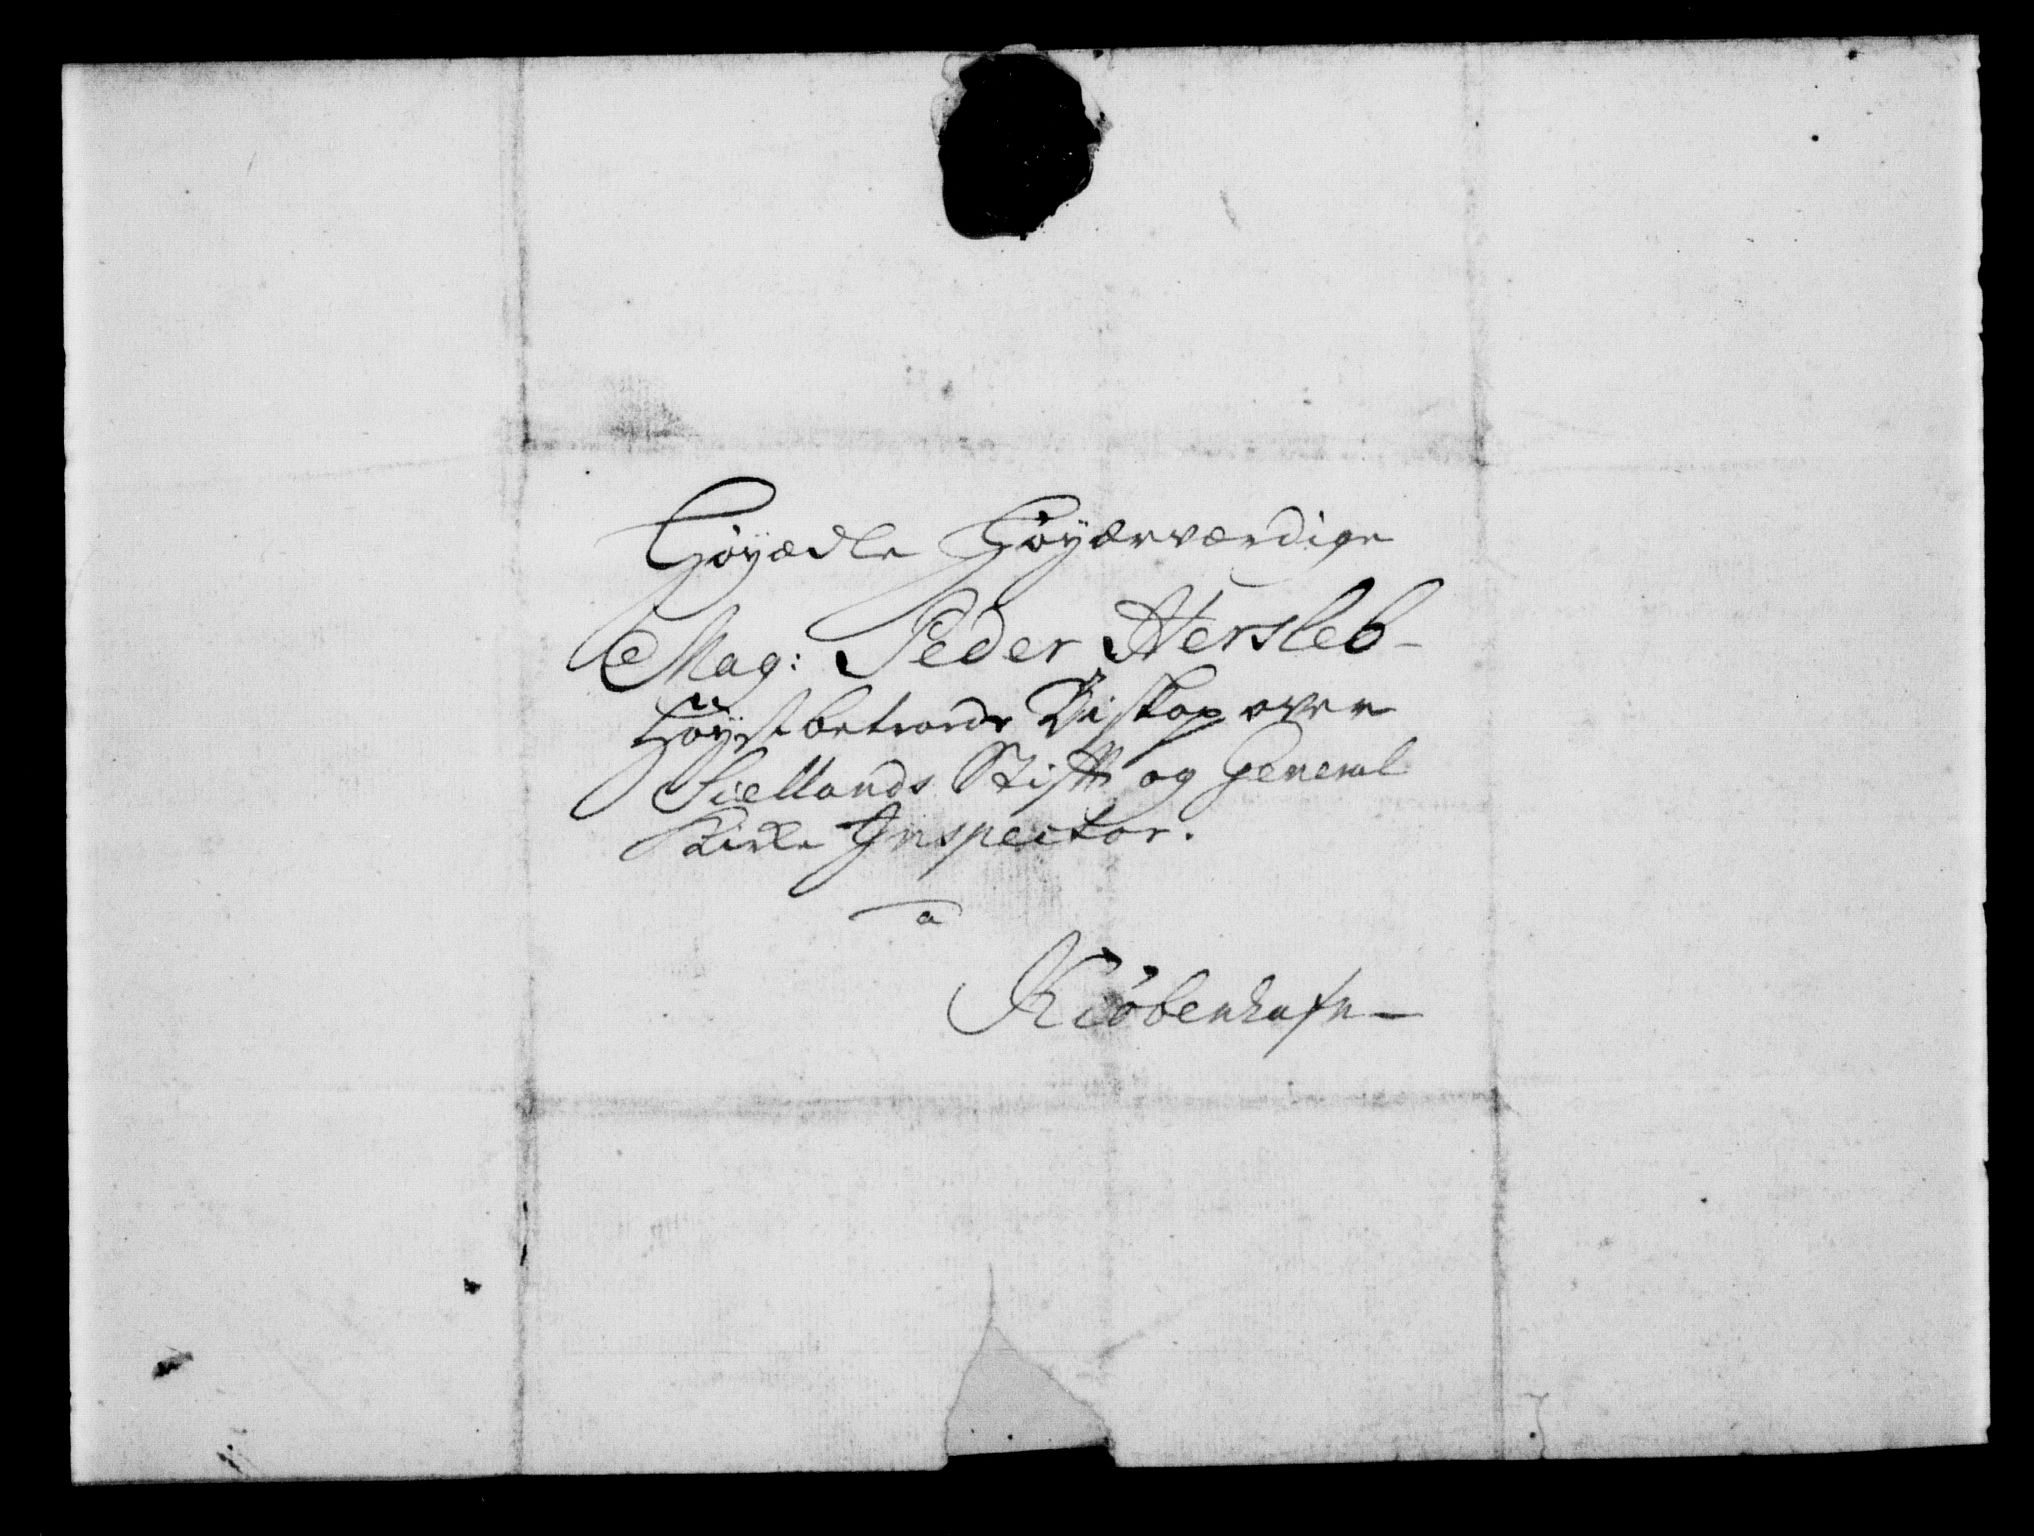 Höyædle Höyærværdige
Mag: Peder Hersleb-
Höystbetroede Biskop over
Siællands Stift og General
Kirke Inspector.
a
Kiöbenhafn-